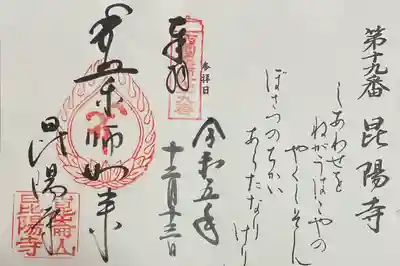 第十九番 昆陽寺
しあわせを
ねがうはこやの
やくしそん
ぼさつのちかい
あらたなり
けり
参拝日
令和五年
十二月十三日
奉拝
薬師如来
昆陽寺
崑崙山
昆陽寺